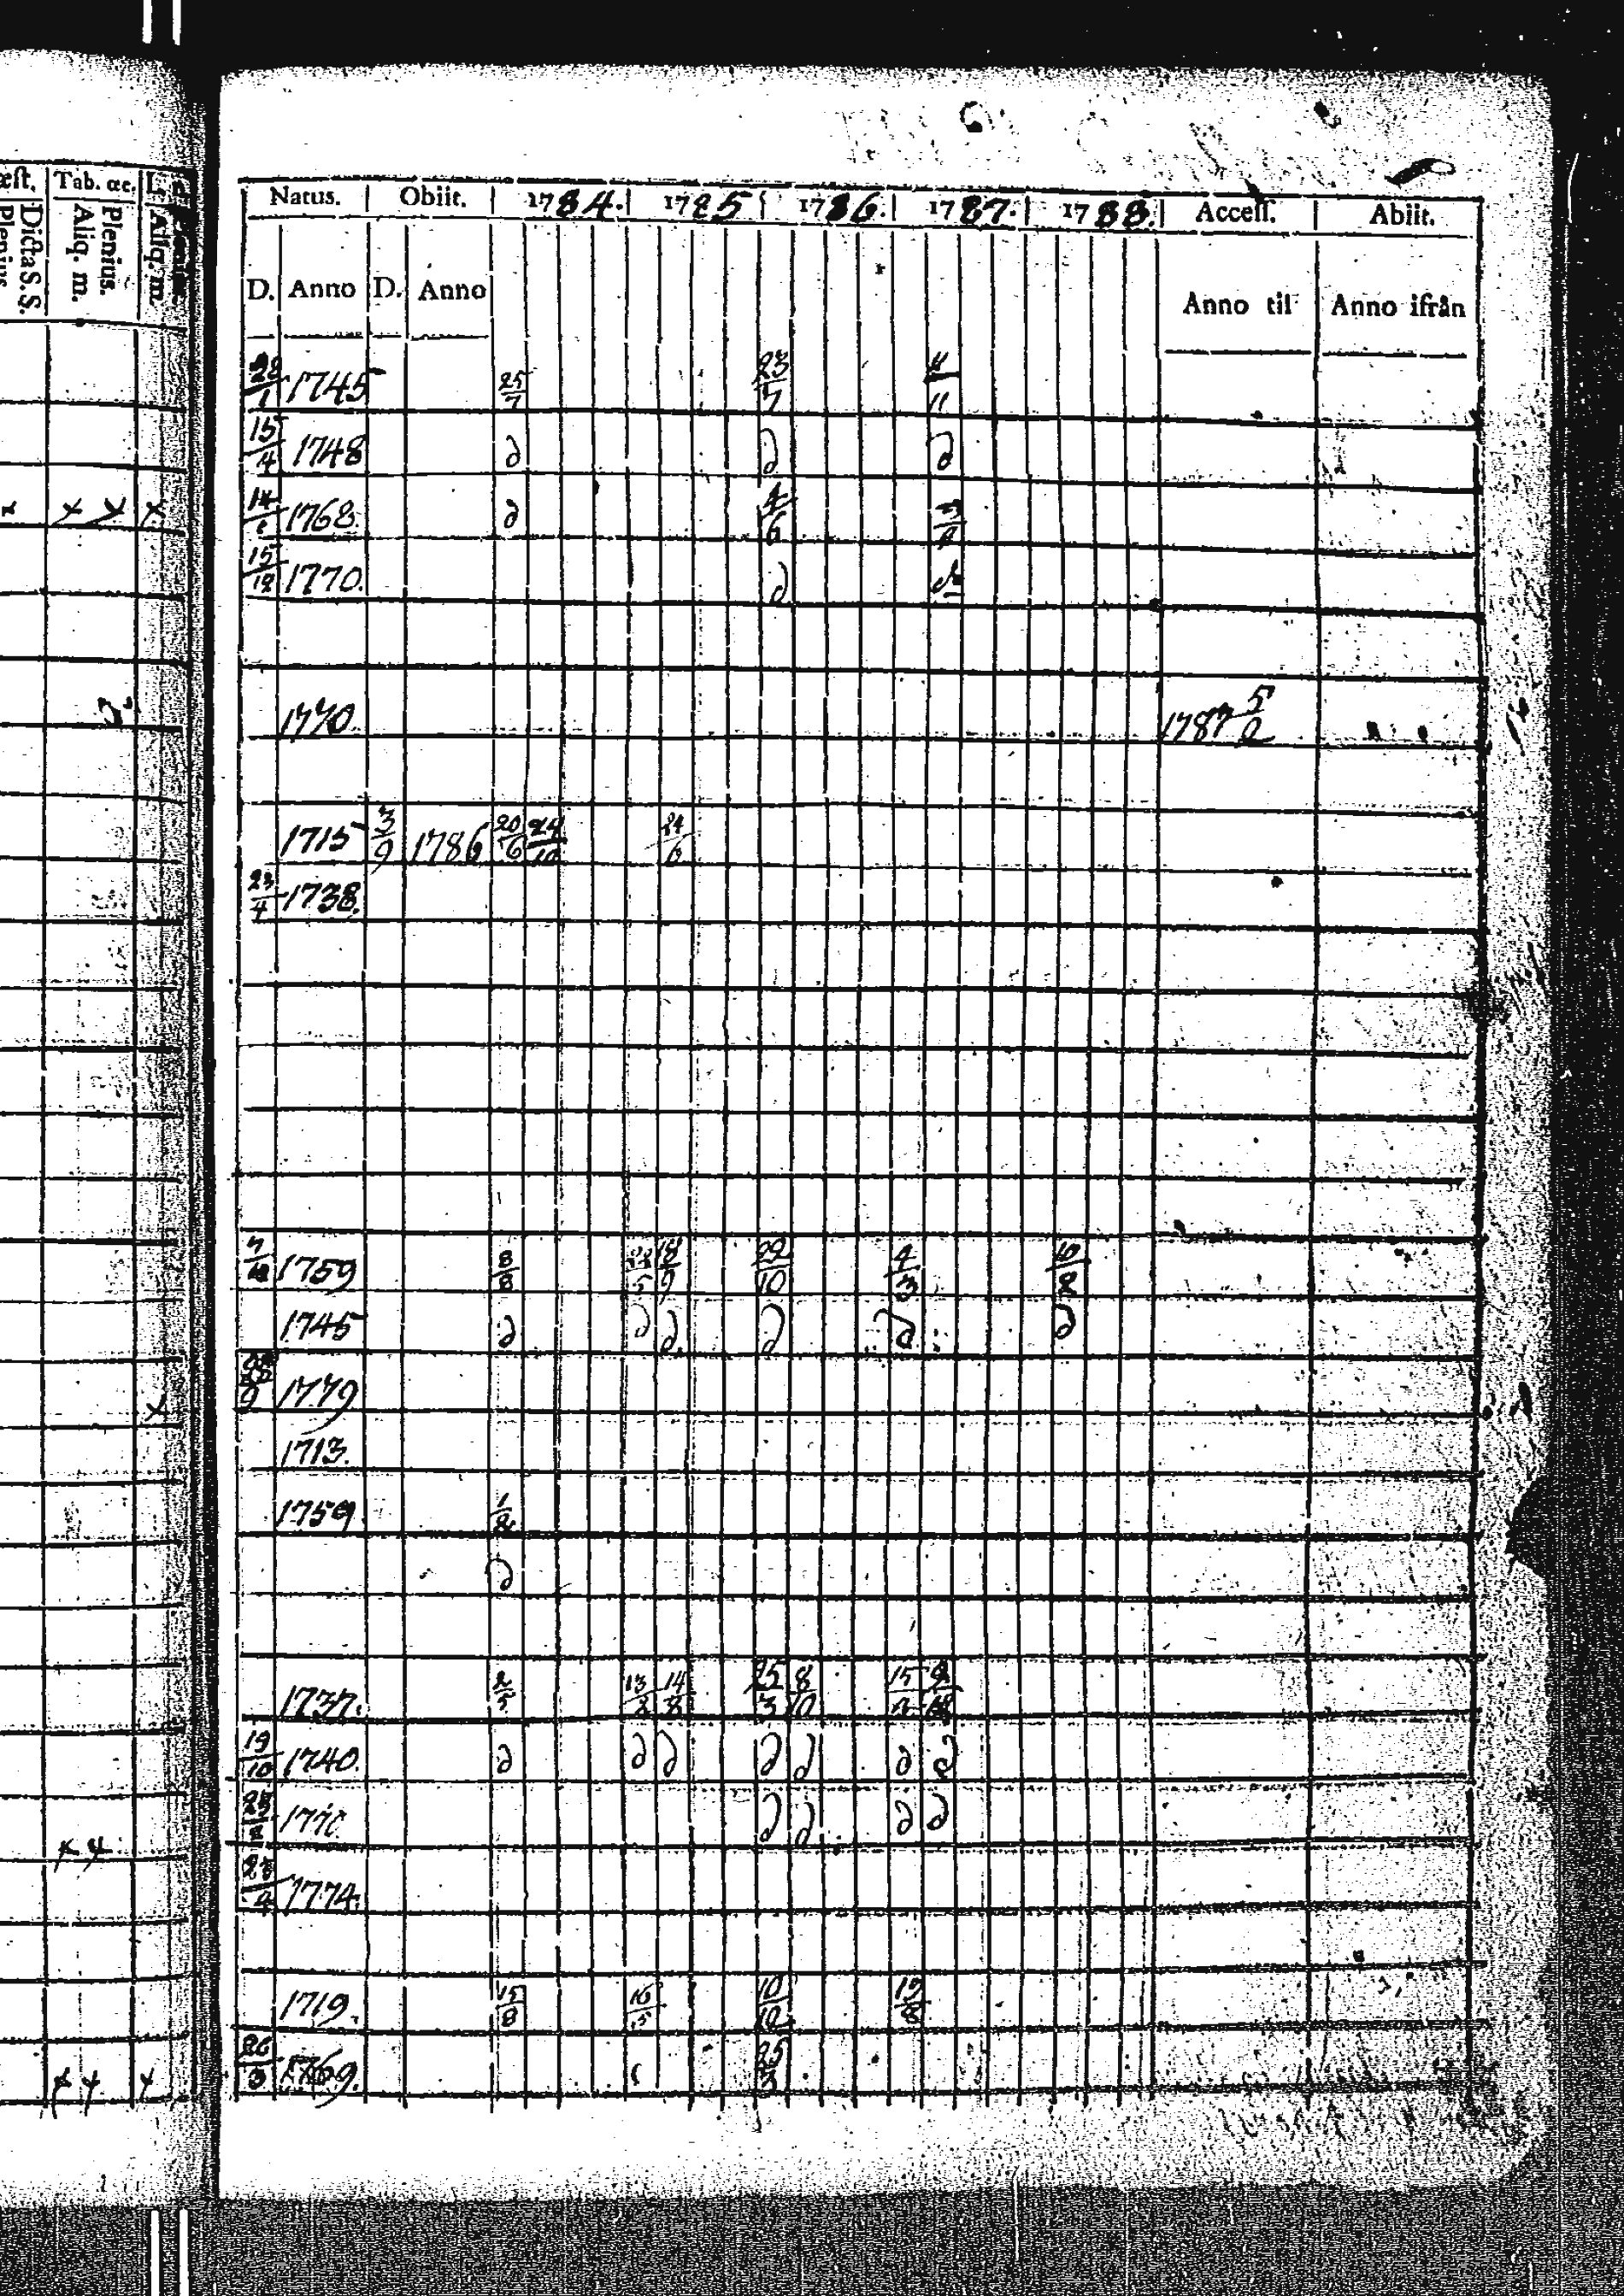 æst. Tab. œc.
Dicta S. S.
Plenius.
Aliq. m.
Plenius.
Aliq. m.
Natus. Obiit. 1784. 1785 1786. 1787. 1788. Access. Abiit.
D. Anno D. Anno Anno til Anno ifrån
28/1 1745 25/7 23/7
15/4 1748 d d d
1768. d 4/6
15/12 1770. d
1770. 1787 5/2
1715 3/9 1786 20/6 24/10 24/6
23/4 1738.
1759 8/8 18/9 29/10 4/3 10/8
1745 d d d d d d
1779
1713.
1759 1/2
d
1737. 2/5 13/8 14/8 25/3 8/10
19/10 1740. d d d d d d d
d d d d
1774.
1719. 15/8 16/5 10/10 19/8
26/3 1769. 25/3